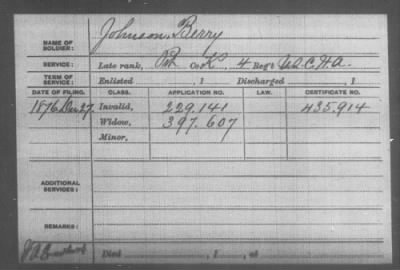 NAME OF SOLDIER: Johnson, Berry
SERVICE: Late rank, Pvt. Co. K, 4 Reg't U.S.C.H.A.
TERM OF SERVICE: Enlisted , 1 Discharged , 1
DATE OF FILING. CLASS. APPLICATION NO. LAW. CERTIFICATE NO.
1876 Dec 27. Invalid, 229.141 435.914
Widow, 397.607
Minor,
ADDITIONAL SERVICES:
REMARKS:
Died , 1 , at